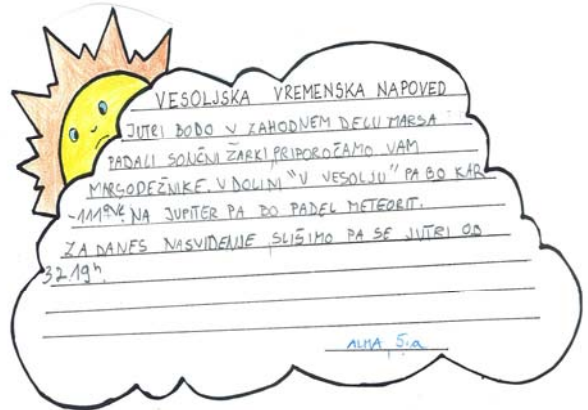 VESOLJSKA VREMENSKA NAPOVED
JUTRI BODO V ZAHODNEM DELU MARSA
PADALI SONČNI ŽARKI, PRIPOROČAMO VAM
MARSODEŽNIKE. V DOLINI "V VESOLJU" PA BO KAR
NA JUPITER PA BO PADEL METEORIT.
ZA DANES NASVIDENJE SLIŠIMO PA SE JUTRI OB
32.19h.
ALMA 5.a